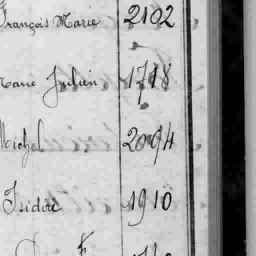 François Marie 2102
Marie Julien 1718
Michel 2094
Isidore 1910